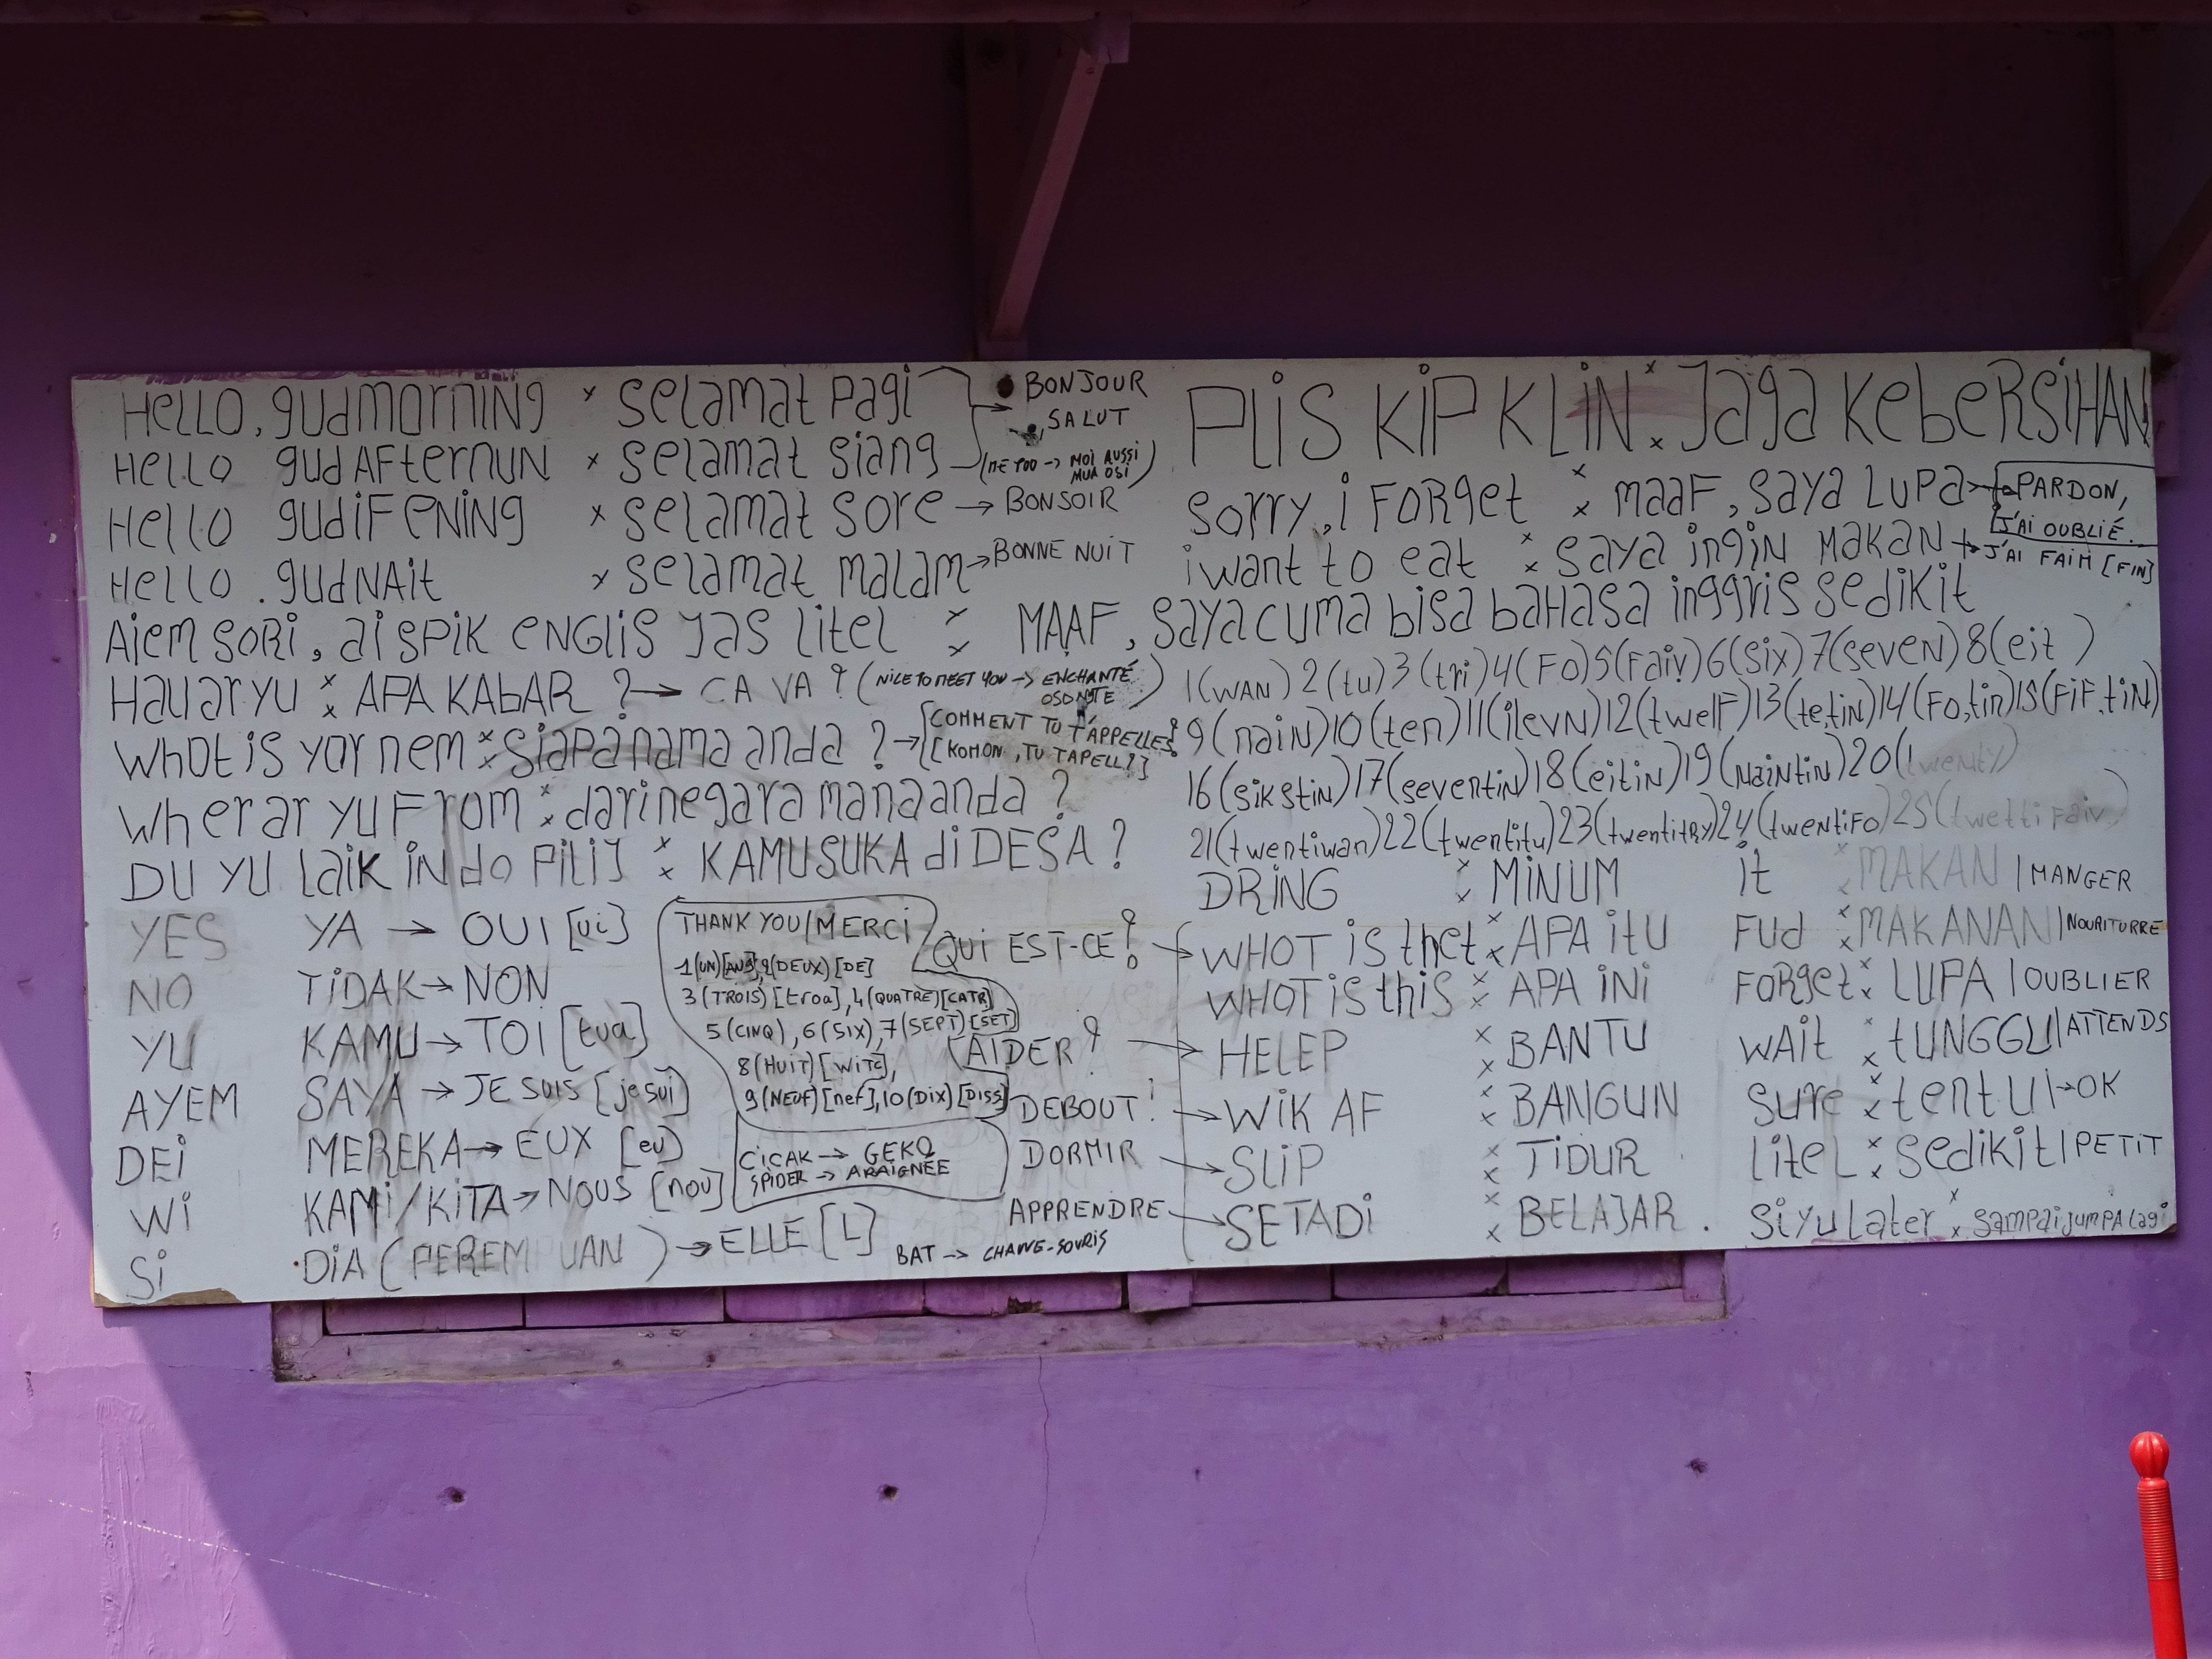 HELLO, gudmorning × selamat pagi → BONJOUR
, SALUT
HELLO gudAFternun × selamat siang (ME TOO → MOI AUSSI
MUA OSI)
HELLO gudiFening × selamat sore → BONSOIR
HELLO . gudNAit × selamat malam → BONNE NUIT
AiemSORi, ai SPiK eNGLiS JAS LiteL : MAAF, saya cuma bisa bahasa inggris sedikit
Hauaryu : APA KAbAR ? → CA VA ? (NICE TO MEET YOU → ENCHANTÉ)
WhOt is yor nem : siapa nama anda ? → [COMMENT TU T'APPELLES ?
[KOMON, TU TAPELL?]
Wherar yu From : dari negara mana anda ?
DU YU Laik indo PiLiJ : KAMUSUKA di DESA ?
YES YA → OUI [ui]
NO TiDAK → NON
YU KAMU → TOI [tua]
AYEM SAYA → JE SUIS [je sui]
DEi MEREKA → EUX [eu]
Wi KAMi/KiTA → NOUS [nou]
Si DiA (PEREMPUAN) → ELLE [L]
THANK YOU/MERCI
1(UN) 2(DEUX) [DE]
3(TROIS) [troa], 4(QUATRE)[CATR]
5(CINQ), 6(SIX), 7(SEPT)[SET]
8(HUIT) [WITE],
9(NEUF)[nef], 10(DIX)[DISS]
CiCAK → GEKO
SPIDER → ARAIGNÉE
BAT → CHAUVE-SOURIS
PLiS KiP KLiN : Jaga KebeRSiHAN
sorry, i FORget : maaF, saya LuPa → PARDON,
J'AI OUBLIÉ.
i want to eat : saya ingin makan → J'AI FAIM [FIN]
1(WAN) 2(tu) 3(tri) 4(FO) 5(Faiv) 6(six) 7(seveN) 8(eit)
9(naiN) 10(ten) 11(ilevN) 12(twelF) 13(te,tiN) 14(Fo,tin) 15(FiF,tiN)
16(sikstiN) 17(seventiN) 18(eitiN) 19(NaiNtiN) 20(twenty)
21(twentiwan) 22(twentitu) 23(twentitRy) 24(twentiFO) 25(twetti Faiv)
DRiNG : MiNUM it : MAKAN | MANGER
QUI EST-CE ? → WHOT is thet : APA itU Fud : MAKANAN | NOURITURRE
WHOT is this : APA iNi FORget : LUPA | OUBLIER
AIDER ? → HELEP : BANTU WAit : tUNGGU | ATTENDS
DEBOUT ! → WiK AF : BANGUN sure : tentu → OK
DORMIR → SLiP : TiDUR LiteL : sedikit | PETIT
APPRENDRE → SETADi : BELAJAR . Si yu Later : sampai jumPA Lagi